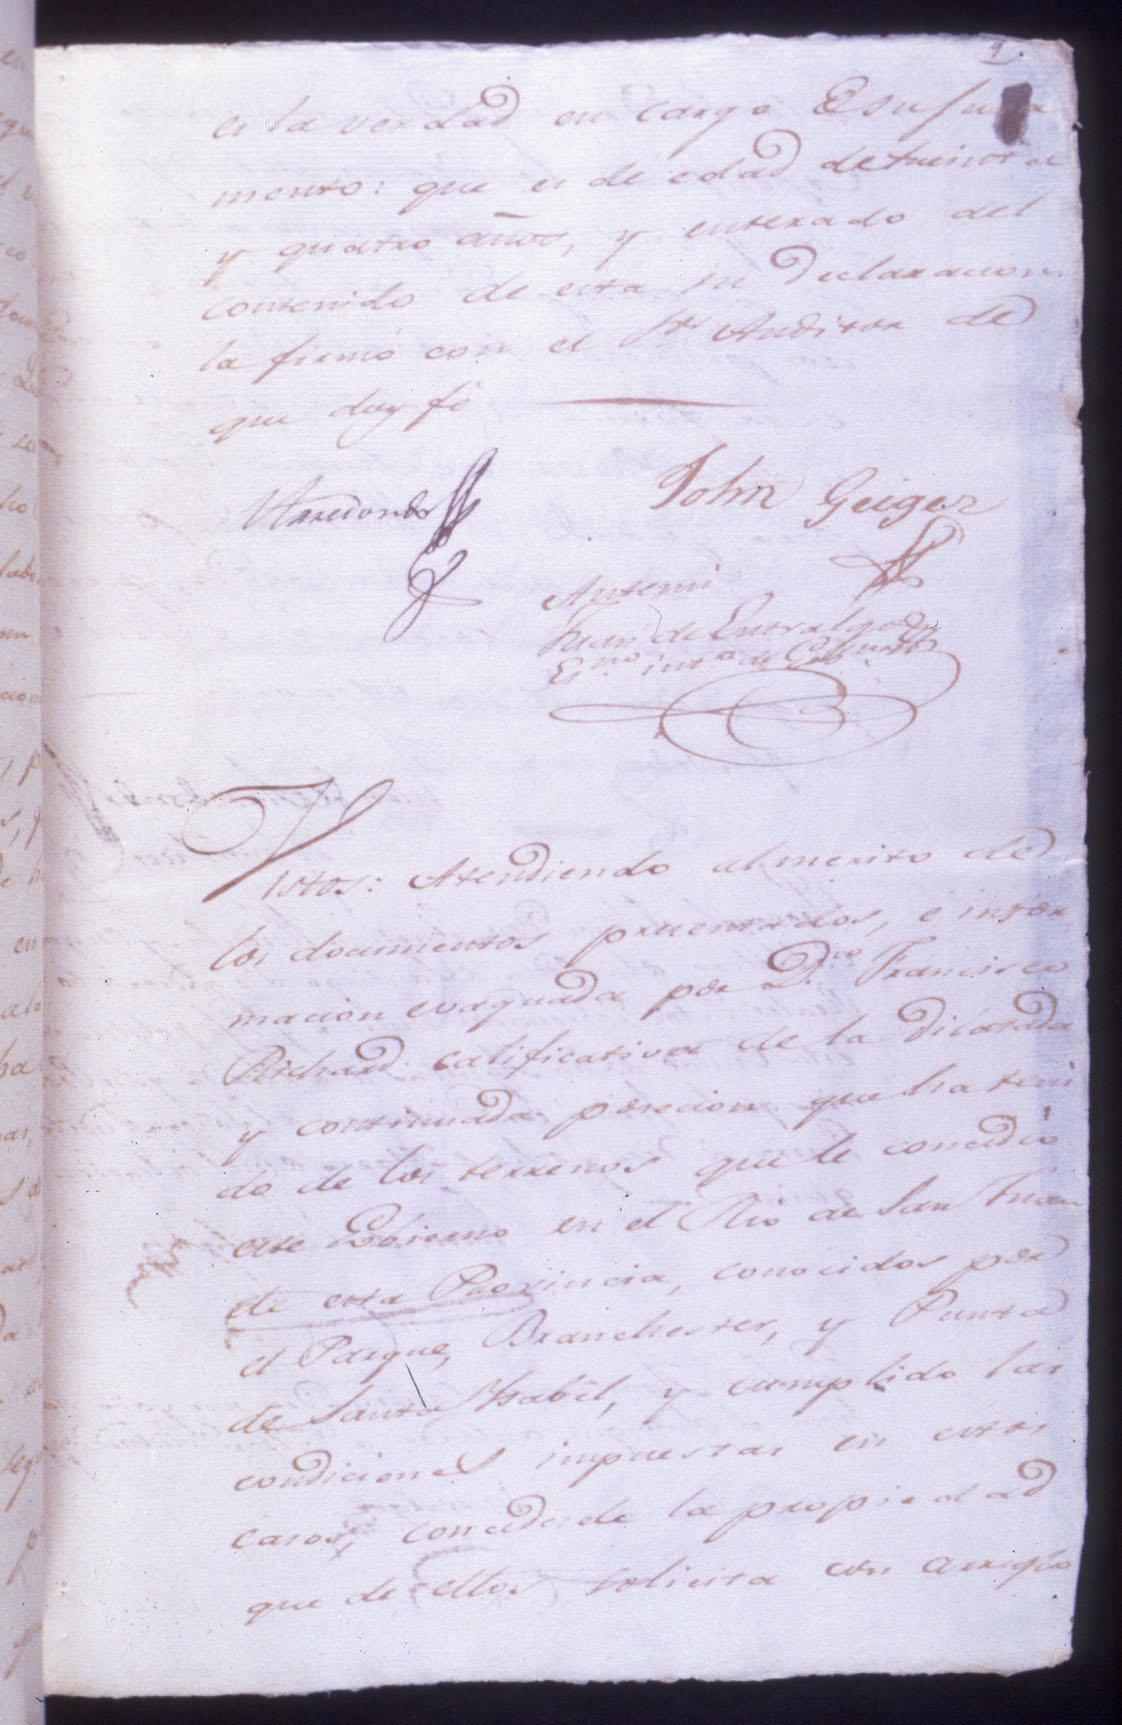 9.
es la verdad en cargo de su jura
mento: que es de edad de treinta
y quatro años, y enterado del
contenido de esta su declaracion
la firmó con el Sor Auditor de
que doy fé
Arredondo
John Geiger
Antemi
Juan de Entralgo
Esno. intno. de Gobno.
Vistos: Atendiendo al merito de
los documentos presentados, e infor
macion evaquada por D. Franco. Francisco
Richard calificativa de la dilatada
y continuada posecion que ha teni
do de los terrenos que le concedió
este Gobierno en el Rio de San Juan
de esta Provincia, conocidos por
el Parque, Branchester, y Punta
de Santa Ysabel, y cumplido las
condiciones impuestas en estos
casos, concedesele la propiedad
que de ellos solicita con arreglo